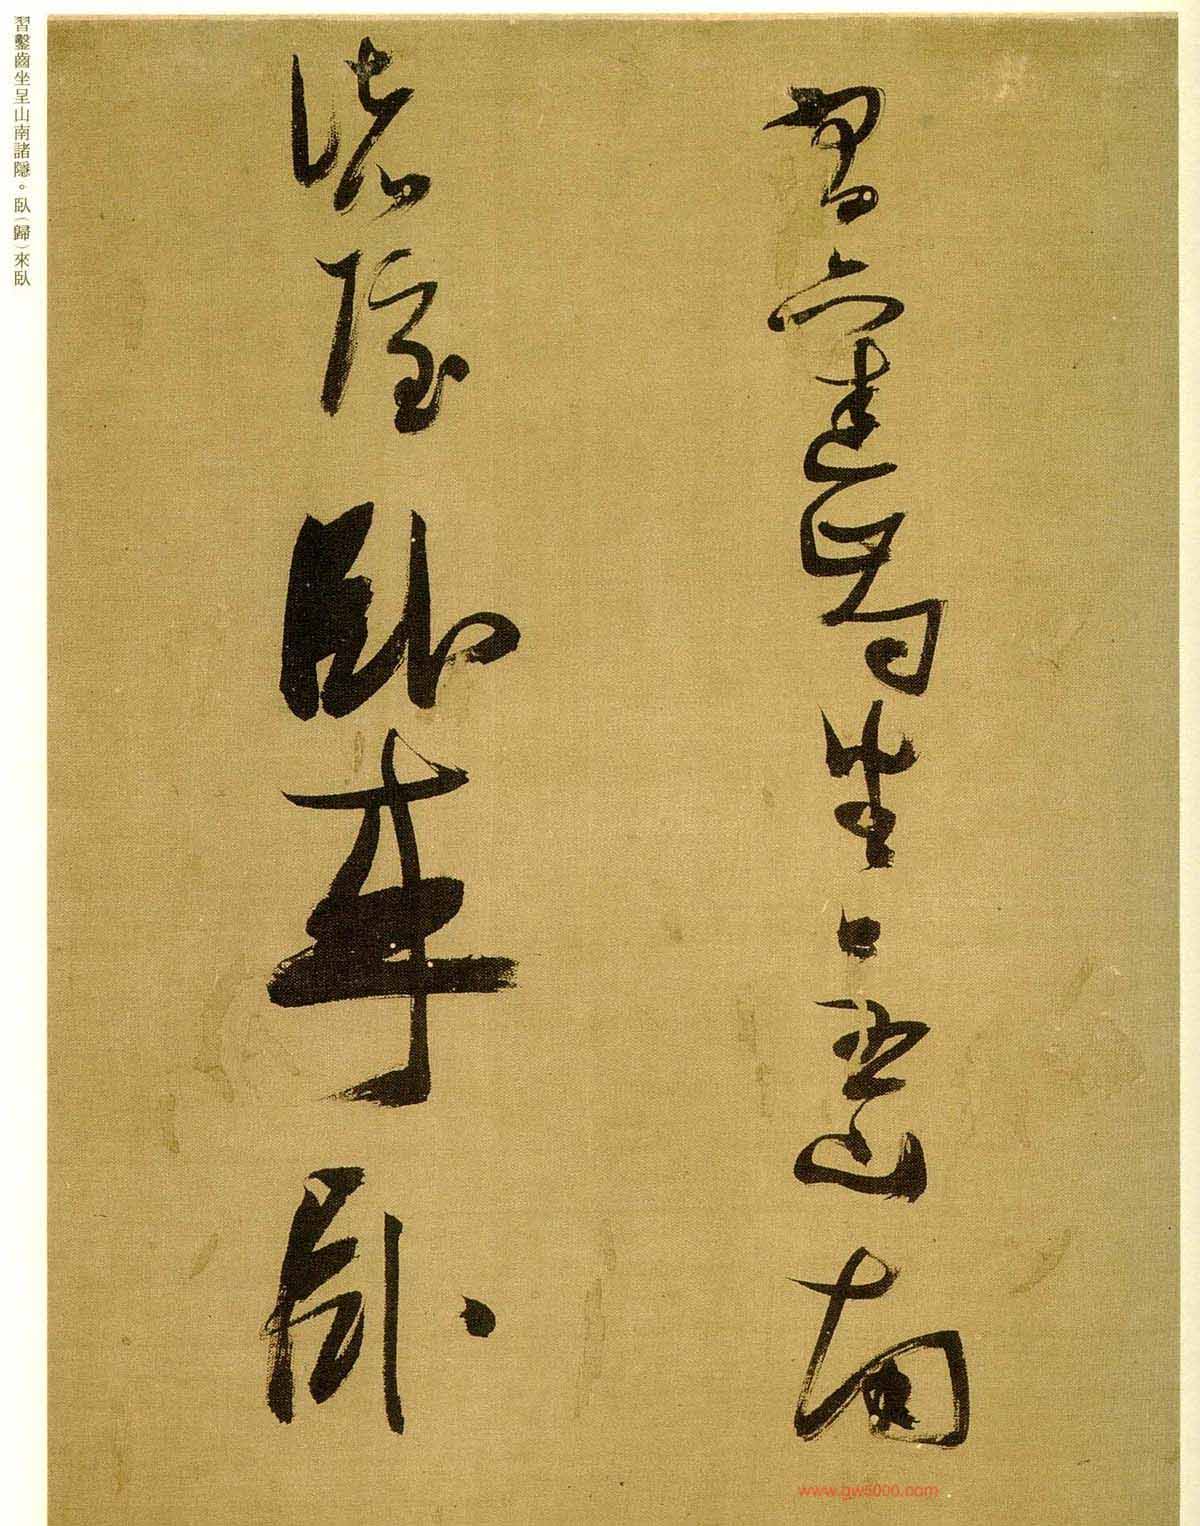 習鑿齒坐呈山南
諸隱臥來臥
習鑿齒坐呈山南諸隱。臥(歸)來臥
www.gw5000.com